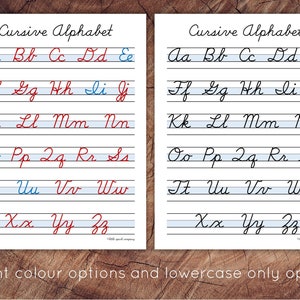 Cursive Alphabet
a Bb Cc Dd Ee
f Gg Hh Ii Jj
Ll Mm Nn
o Pp Qq Rr Ss
Uu Vv Ww
Xx Yy Zz
Cursive Alphabet
Aa Bb Cc Dd
Ff Gg Hh Ii
Kk Ll Mm
Oo Pp Qq Rr
Tt Uu Vv
Xx Yy Zz
nt colour options and lowercase only op